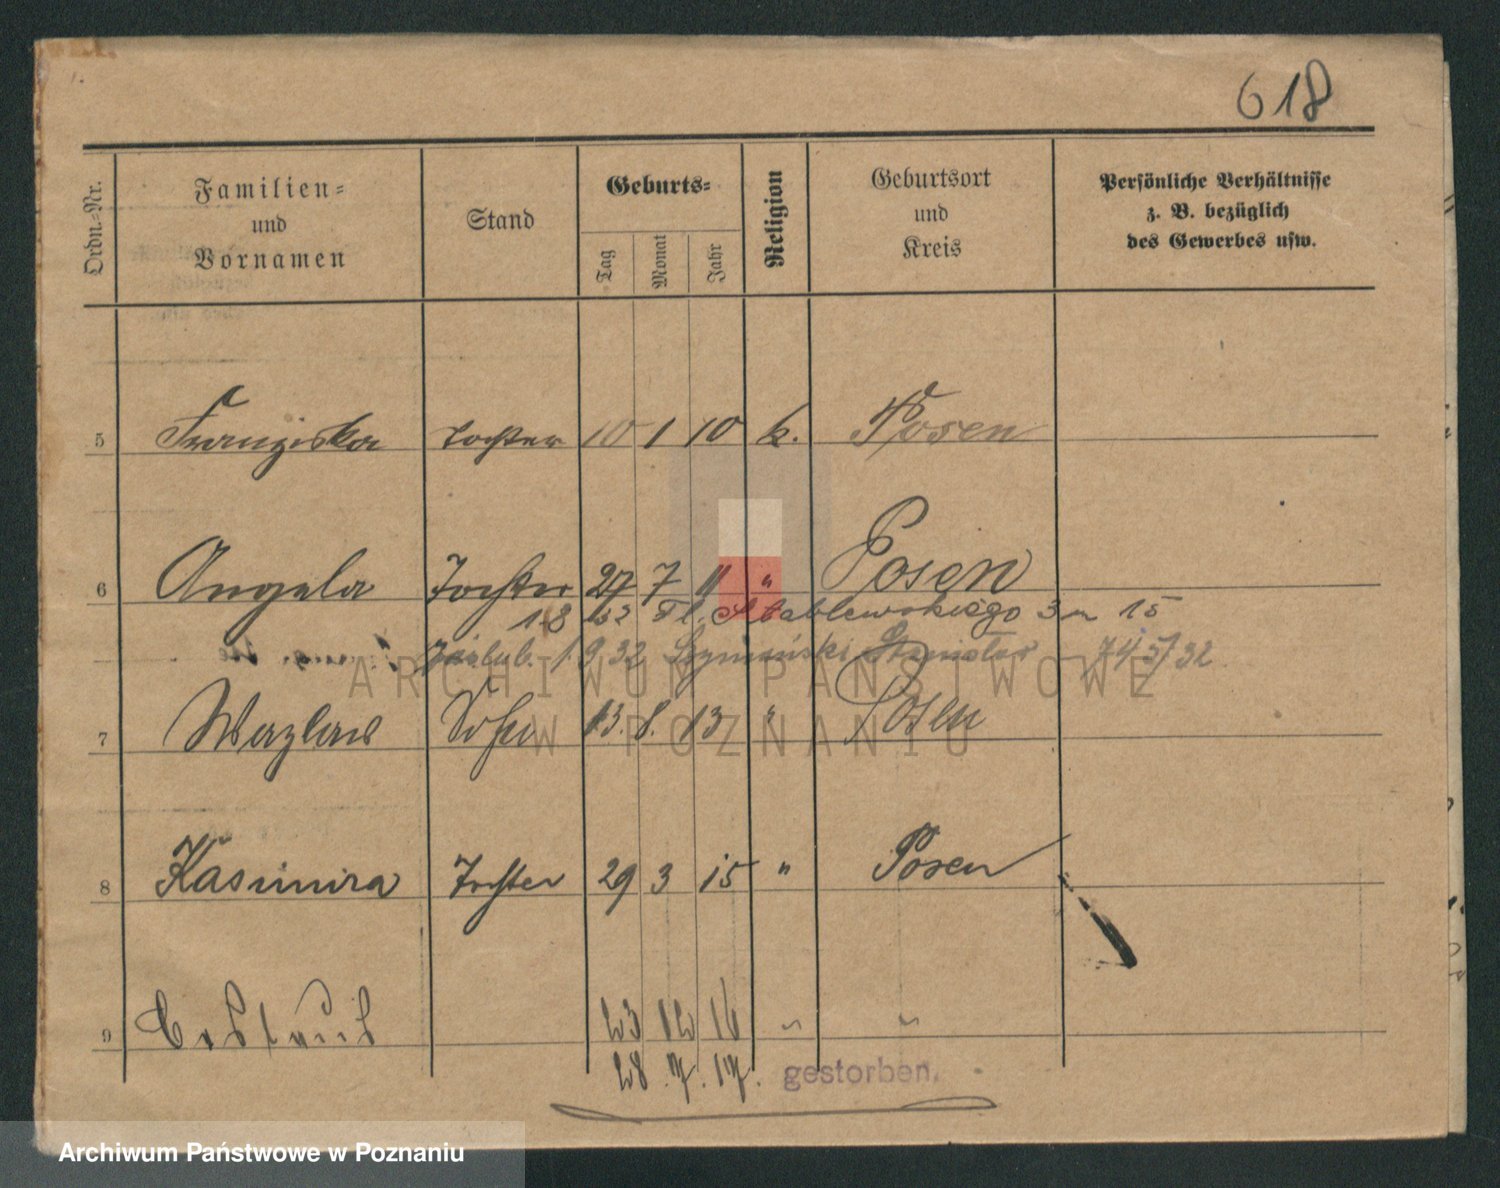 618
Ordn.-Nr.
Familien-
und
Vornamen
Stand
Geburts-
Tag Monat Jahr
Religion
Geburtsort
und
Kreis
Persönliche Verhältnisse
z. B. bezüglich
des Gewerbes usw.
5 Franziska Tochter 10 1 10 k. Posen
6 Angela Tochter 27 7 11 " Posen
1.8 Pl. Stablewskiego 3 m 15
1 9 32 Szymański Stanisław 32
ARCHIWUM PAŃSTWOWE
W POZNANIU
7 Wazlaw Sohn 13. 8. 13 " Posen
8 Kasimira Tochter 29 3 15 " Posen
9 23 12 16 " "
28. 7. 17. gestorben.
Archiwum Państwowe w Poznaniu